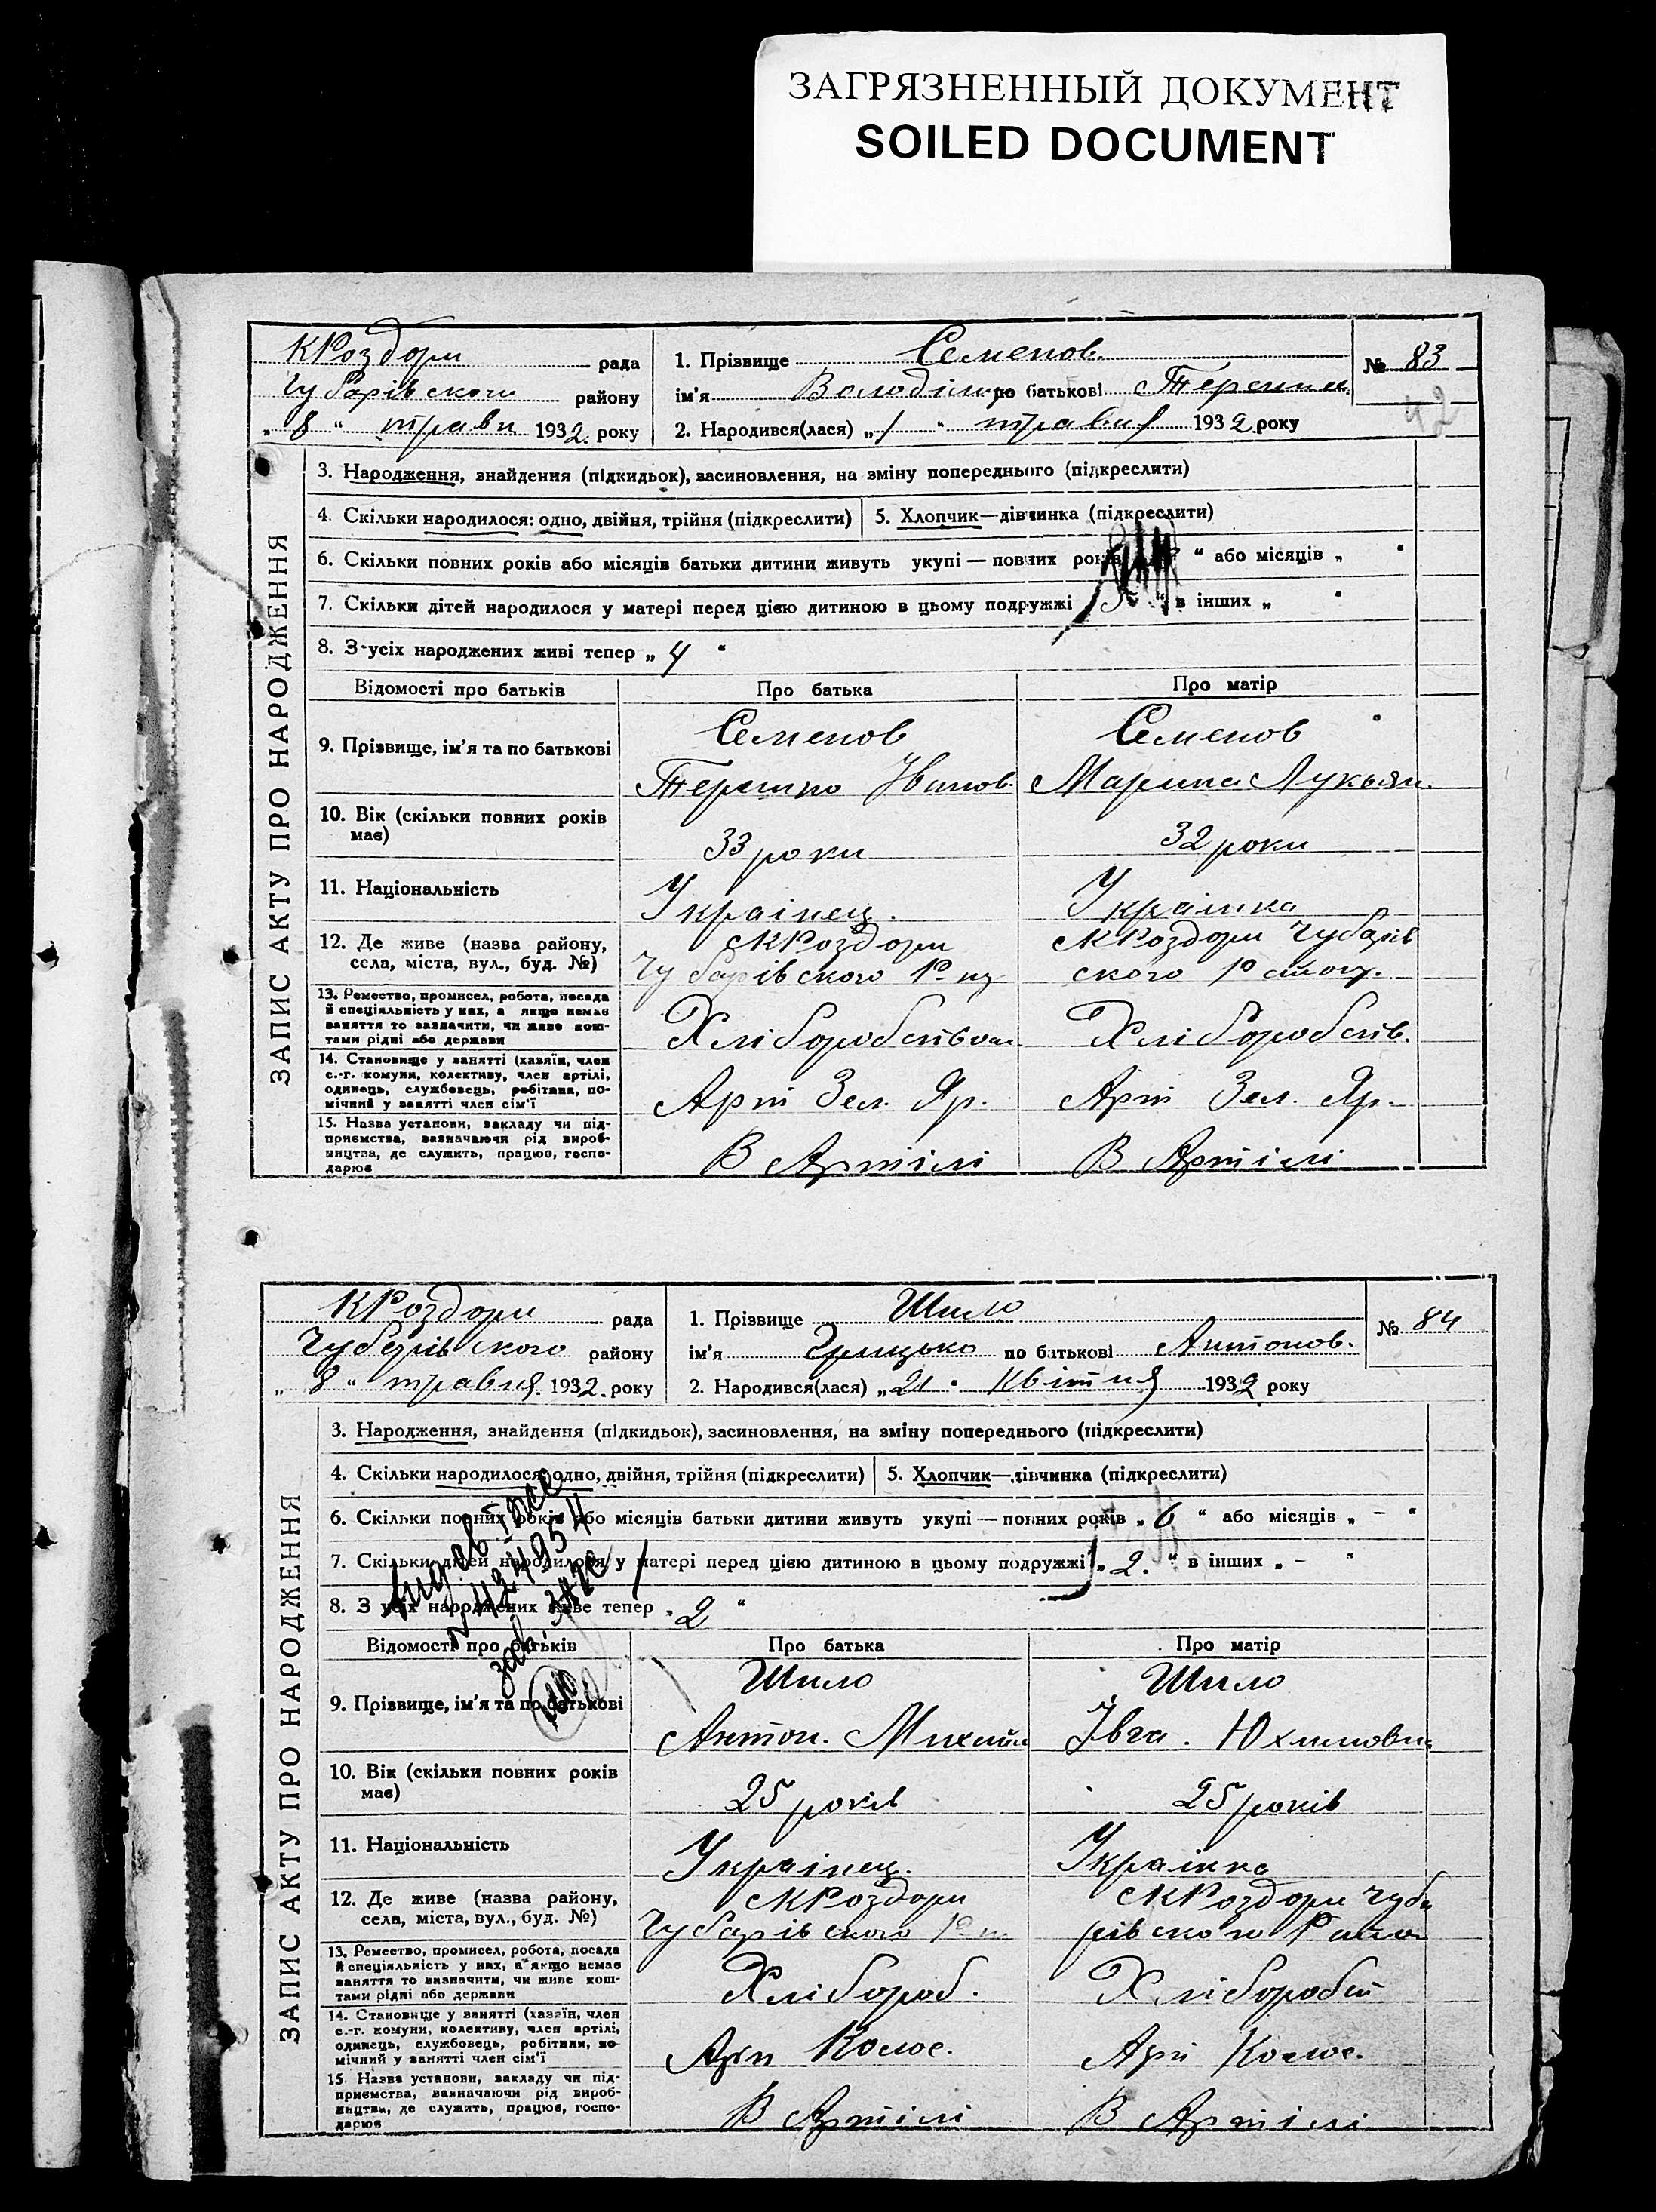 ЗАГРЯЗНЕННЫЙ ДОКУМЕНТ
SOILED DOCUMENT
ЗАПИС АКТУ ПРО НАРОДЖЕННЯ
КРоздори рада
Чубарівского району
„ 8 “ травн 1932. року
1. Прізвище Семенов.
ім’я Володімир по батькові
2. Народився(лася) „1“ травня 1932 року
№ 83
42
3. Народження, знайдення (підкидьок), засиновлення, на зміну попереднього (підкреслити)
4. Скільки народилося: одно, двійня, трійня (підкреслити)
5. Хлопчик—дівчинка (підкреслити)
6. Скільки повних років або місяців батьки дитини живуть укупі — повних років “ або місяців „ “
7. Скільки дітей народилося у матері перед цією дитиною в цьому подружжі “ в інших „ “
8. З усіх народжених живі тепер „ 4 “
Відомості про батьків Про батька Про матір
9. Прізвище, ім’я та по батькові
Семенов Семенов
Іванов. Марина Лукьян.
10. Вік (скільки повних років має)
33 роки 32 роки
11. Національність
Українец. Українка
12. Де живе (назва району, села, міста, вул., буд. №)
с КРоздори с КРоздори Чубарів
Чубарівского ского
13. Ремество, промисел, робота, посада й спеціяльність у них, а якщо немає заняття то зазначити, чи живе коштами рідні або держави
Хліборобством Хліборобств.
14. Становище у занятті (хазяїн, член с.-г. комуни, колективу, член артілі, одинець, службовець, робітник, помічний у занятті член сім’ї
Арт Зел. Яр. Арт Зел. Яр.
15. Назва установи, закладу чи підприємства, зазначаючи рід виробництва, де служить, працює, господарює
В Артілі В Артілі
ЗАПИС АКТУ ПРО НАРОДЖЕННЯ
КРоздори рада
Чубарівского району
„ 8 “ травня. 1932. року
1. Прізвище Шило
ім’я Грицько по батькові Антонов.
2. Народився(лася) „21“ квітня 1932 року
№ 84
3. Народження, знайдення (підкидьок), засиновлення, на зміну попереднього (підкреслити)
4. Скільки народилося: одно, двійня, трійня (підкреслити)
5. Хлопчик—дівчинка (підкреслити)
6. Скільки повних років або місяців батьки дитини живуть укупі — повних років „ 6 “ або місяців „ – “
7. Скільки дітей народилося у матері перед цією дитиною в цьому подружжі „ 2. “ в інших „ – “
8. З усіх народжених живе тепер „ 2 “
424954
Відомості про батьків Про батька Про матір
9. Прізвище, ім’я та по батькові
Шило Шило
Антон. Івга. Юхимовна
10. Вік (скільки повних років має)
25 років 25 років
11. Національність
Українец. Українка
12. Де живе (назва району, села, міста, вул., буд. №)
с КРоздори с КРоздори Чуба
Чубарівского рівского
13. Ремество, промисел, робота, посада й спеціяльність у них, а якщо немає заняття то зазначити, чи живе коштами рідні або держави
Хлібороб. Хлібороб
14. Становище у занятті (хазяїн, член с.-г. комуни, колективу, член артілі, одинець, службовець, робітник, помічний у занятті член сім’ї
Арт Колос. Арт Колос.
15. Назва установи, закладу чи підприємства, зазначаючи рід виробництва, де служить, працює, господарює
В Артілі В Артілі